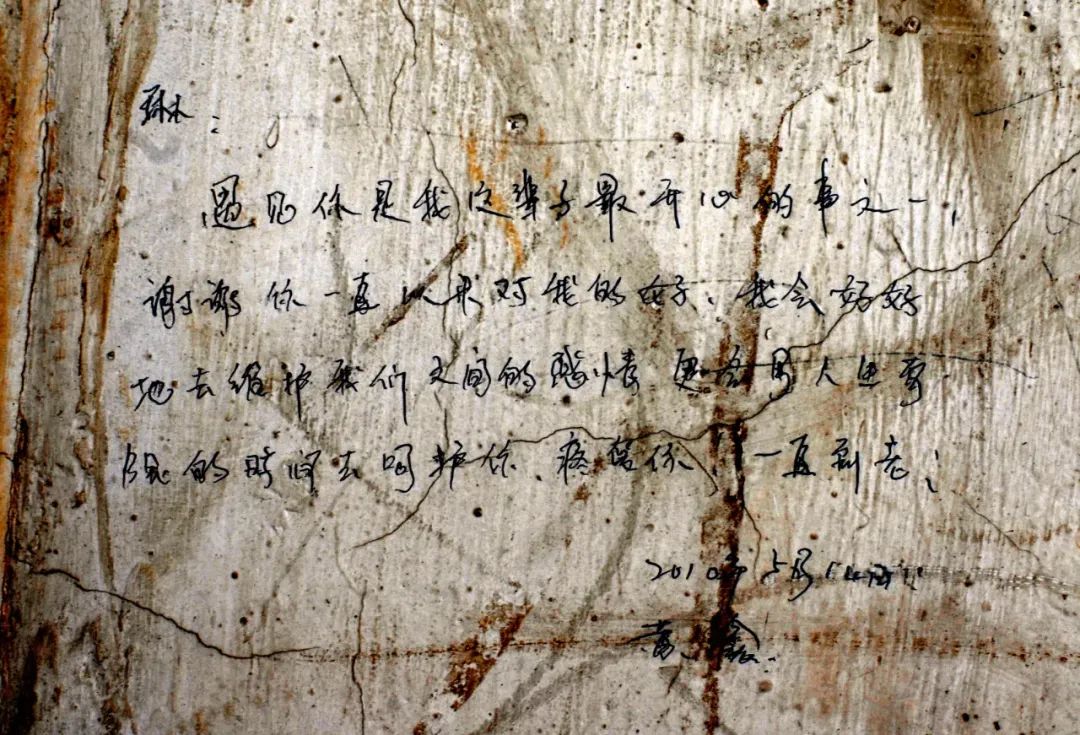 琳：
遇见你是我这辈子最开心的事之一，
谢谢你一直以来对我的好，我会好好
地去维护我们之间的感情 更会用人生有
限的时间去呵护你、疼惜你，一直到老；
2010年5月14日
黄鑫